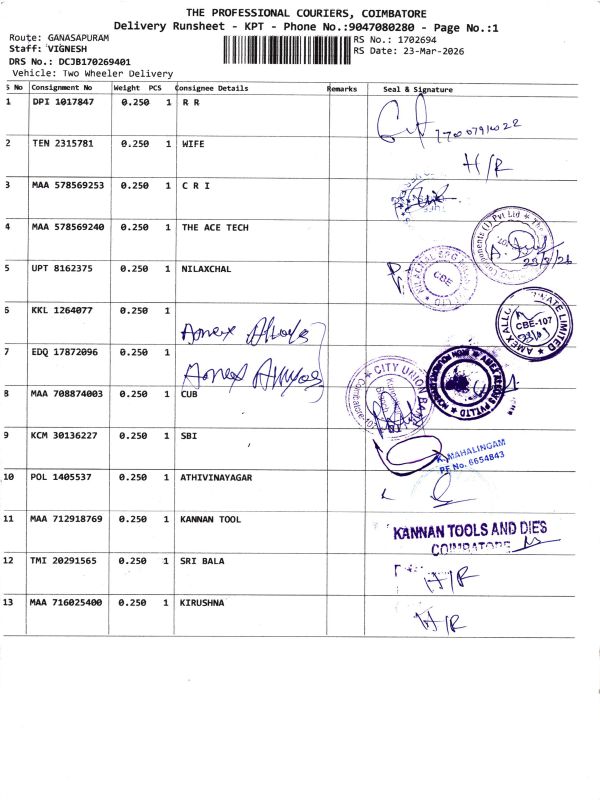 THE PROFESSIONAL COURIERS, COIMBATORE
Delivery Runsheet - KPT - Phone No.:9047080280 - Page No.:1
Route: GANASAPURAM
RS No.: 1702694
Staff: VIGNESH
RS Date: 23-Mar-2026
DRS No.: DCJB170269401
Vehicle: Two Wheeler Delivery
S No Consignment No Weight PCS Consignee Details Remarks Seal & Signature
1 DPI 1017847 0.250 1 R R
2 TEN 2315781 0.250 1 WIFE H/R
3 MAA 578569253 0.250 1 C R I
4 MAA 578569240 0.250 1 THE ACE TECH
5 UPT 8162375 0.250 1 NILAXCHAL CBE
6 KKL 1264077 0.250 1 Amex Alloys CBE-107
7 EDQ 17872096 0.250 1 Amex Alloys
8 MAA 708874003 0.250 1 CUB CITY UNION BANK
9 KCM 30136227 0.250 1 SBI
K. MAHALINGAM
P.F. No. 6654843
10 POL 1405537 0.250 1 ATHIVINAYAGAR
11 MAA 712918769 0.250 1 KANNAN TOOL
KANNAN TOOLS AND DIES
COIMBATORE
12 TMI 20291565 0.250 1 SRI BALA H/R
13 MAA 716025400 0.250 1 KIRUSHNA H/R